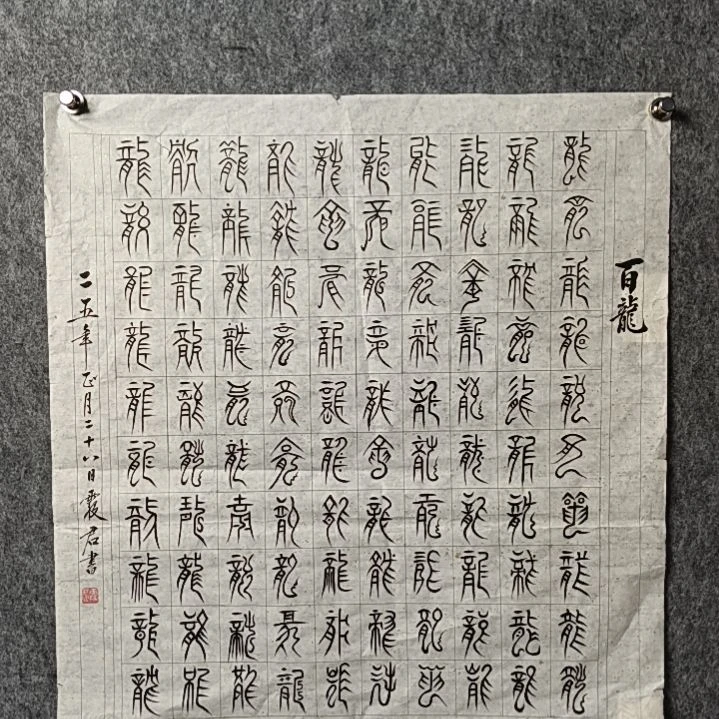 百龍
龍龍龍龍龍龍龍龍龍龍
龍龍龍龍龍龍龍龍龍龍
龍龍龍龍龍龍龍龍龍龍
龍龍龍龍龍龍龍龍龍龍
龍龍龍龍龍龍龍龍龍龍
龍龍龍龍龍龍龍龍龍龍
龍龍龍龍龍龍龍龍龍龍
龍龍龍龍龍龍龍龍龍龍
龍龍龍龍龍龍龍龍龍龍
龍龍龍龍龍龍龍龍龍龍
二五年正月二十八日霞君書